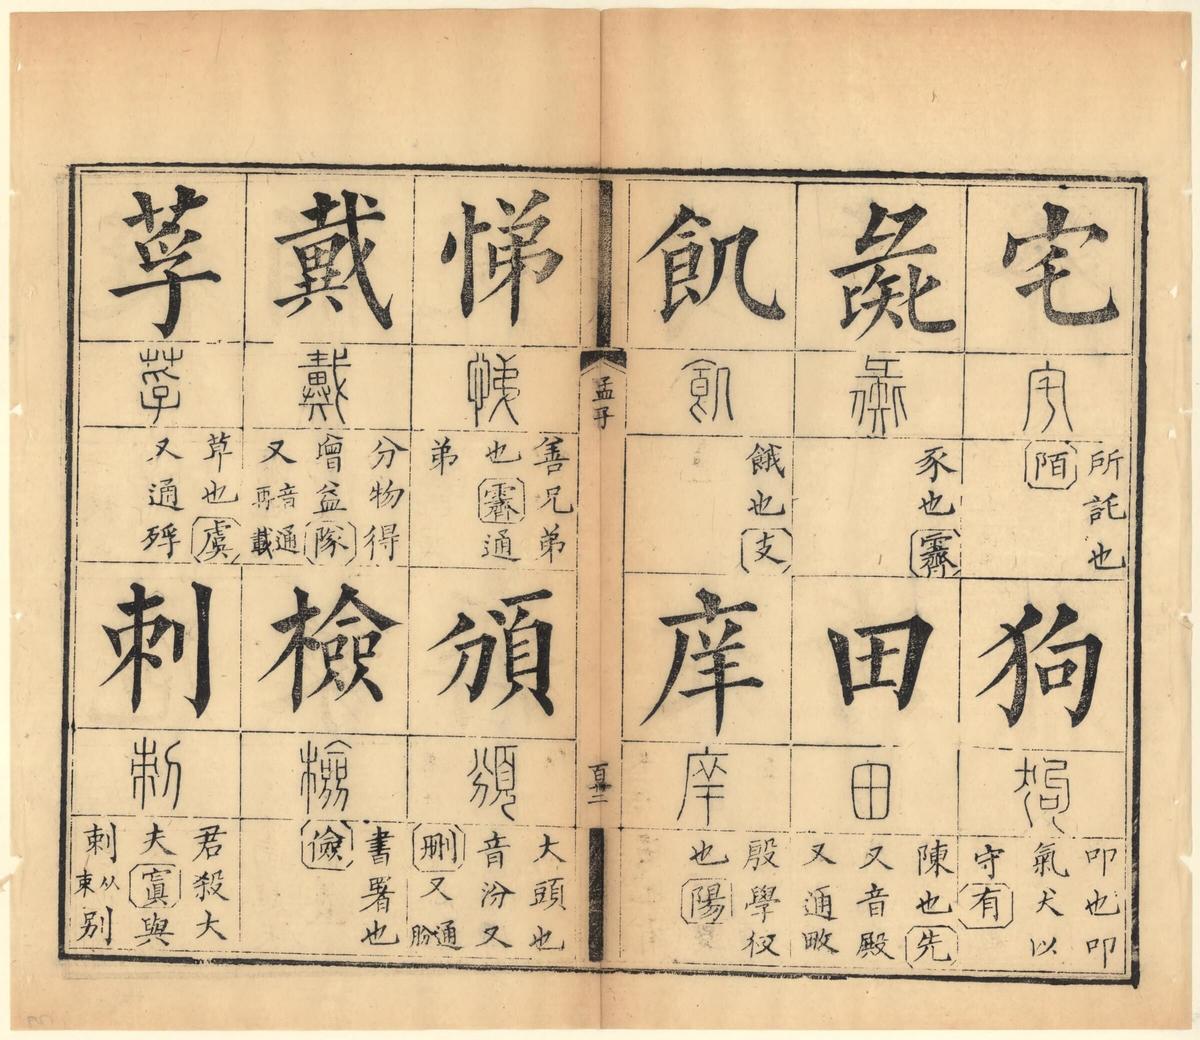 宅
宅
所託也
陌
狗
狗
叩也叩
氣犬以
守有
彘
彘
豕也霽
田
田
陳也先
又音殿
又通畋
飢
飢
餓也支
庠
庠
殷學校
也陽
孟子
百二
悌
悌
善兄弟
也霽通
弟
頒
頒
大頭也
音汾又
刪又通朌
戴
戴
分物得
曾益隊
又音再通載
檢
檢
書署也
儉
莩
莩
草也虞
又通殍
刺
刺
君殺大
夫寘與
剌从束別